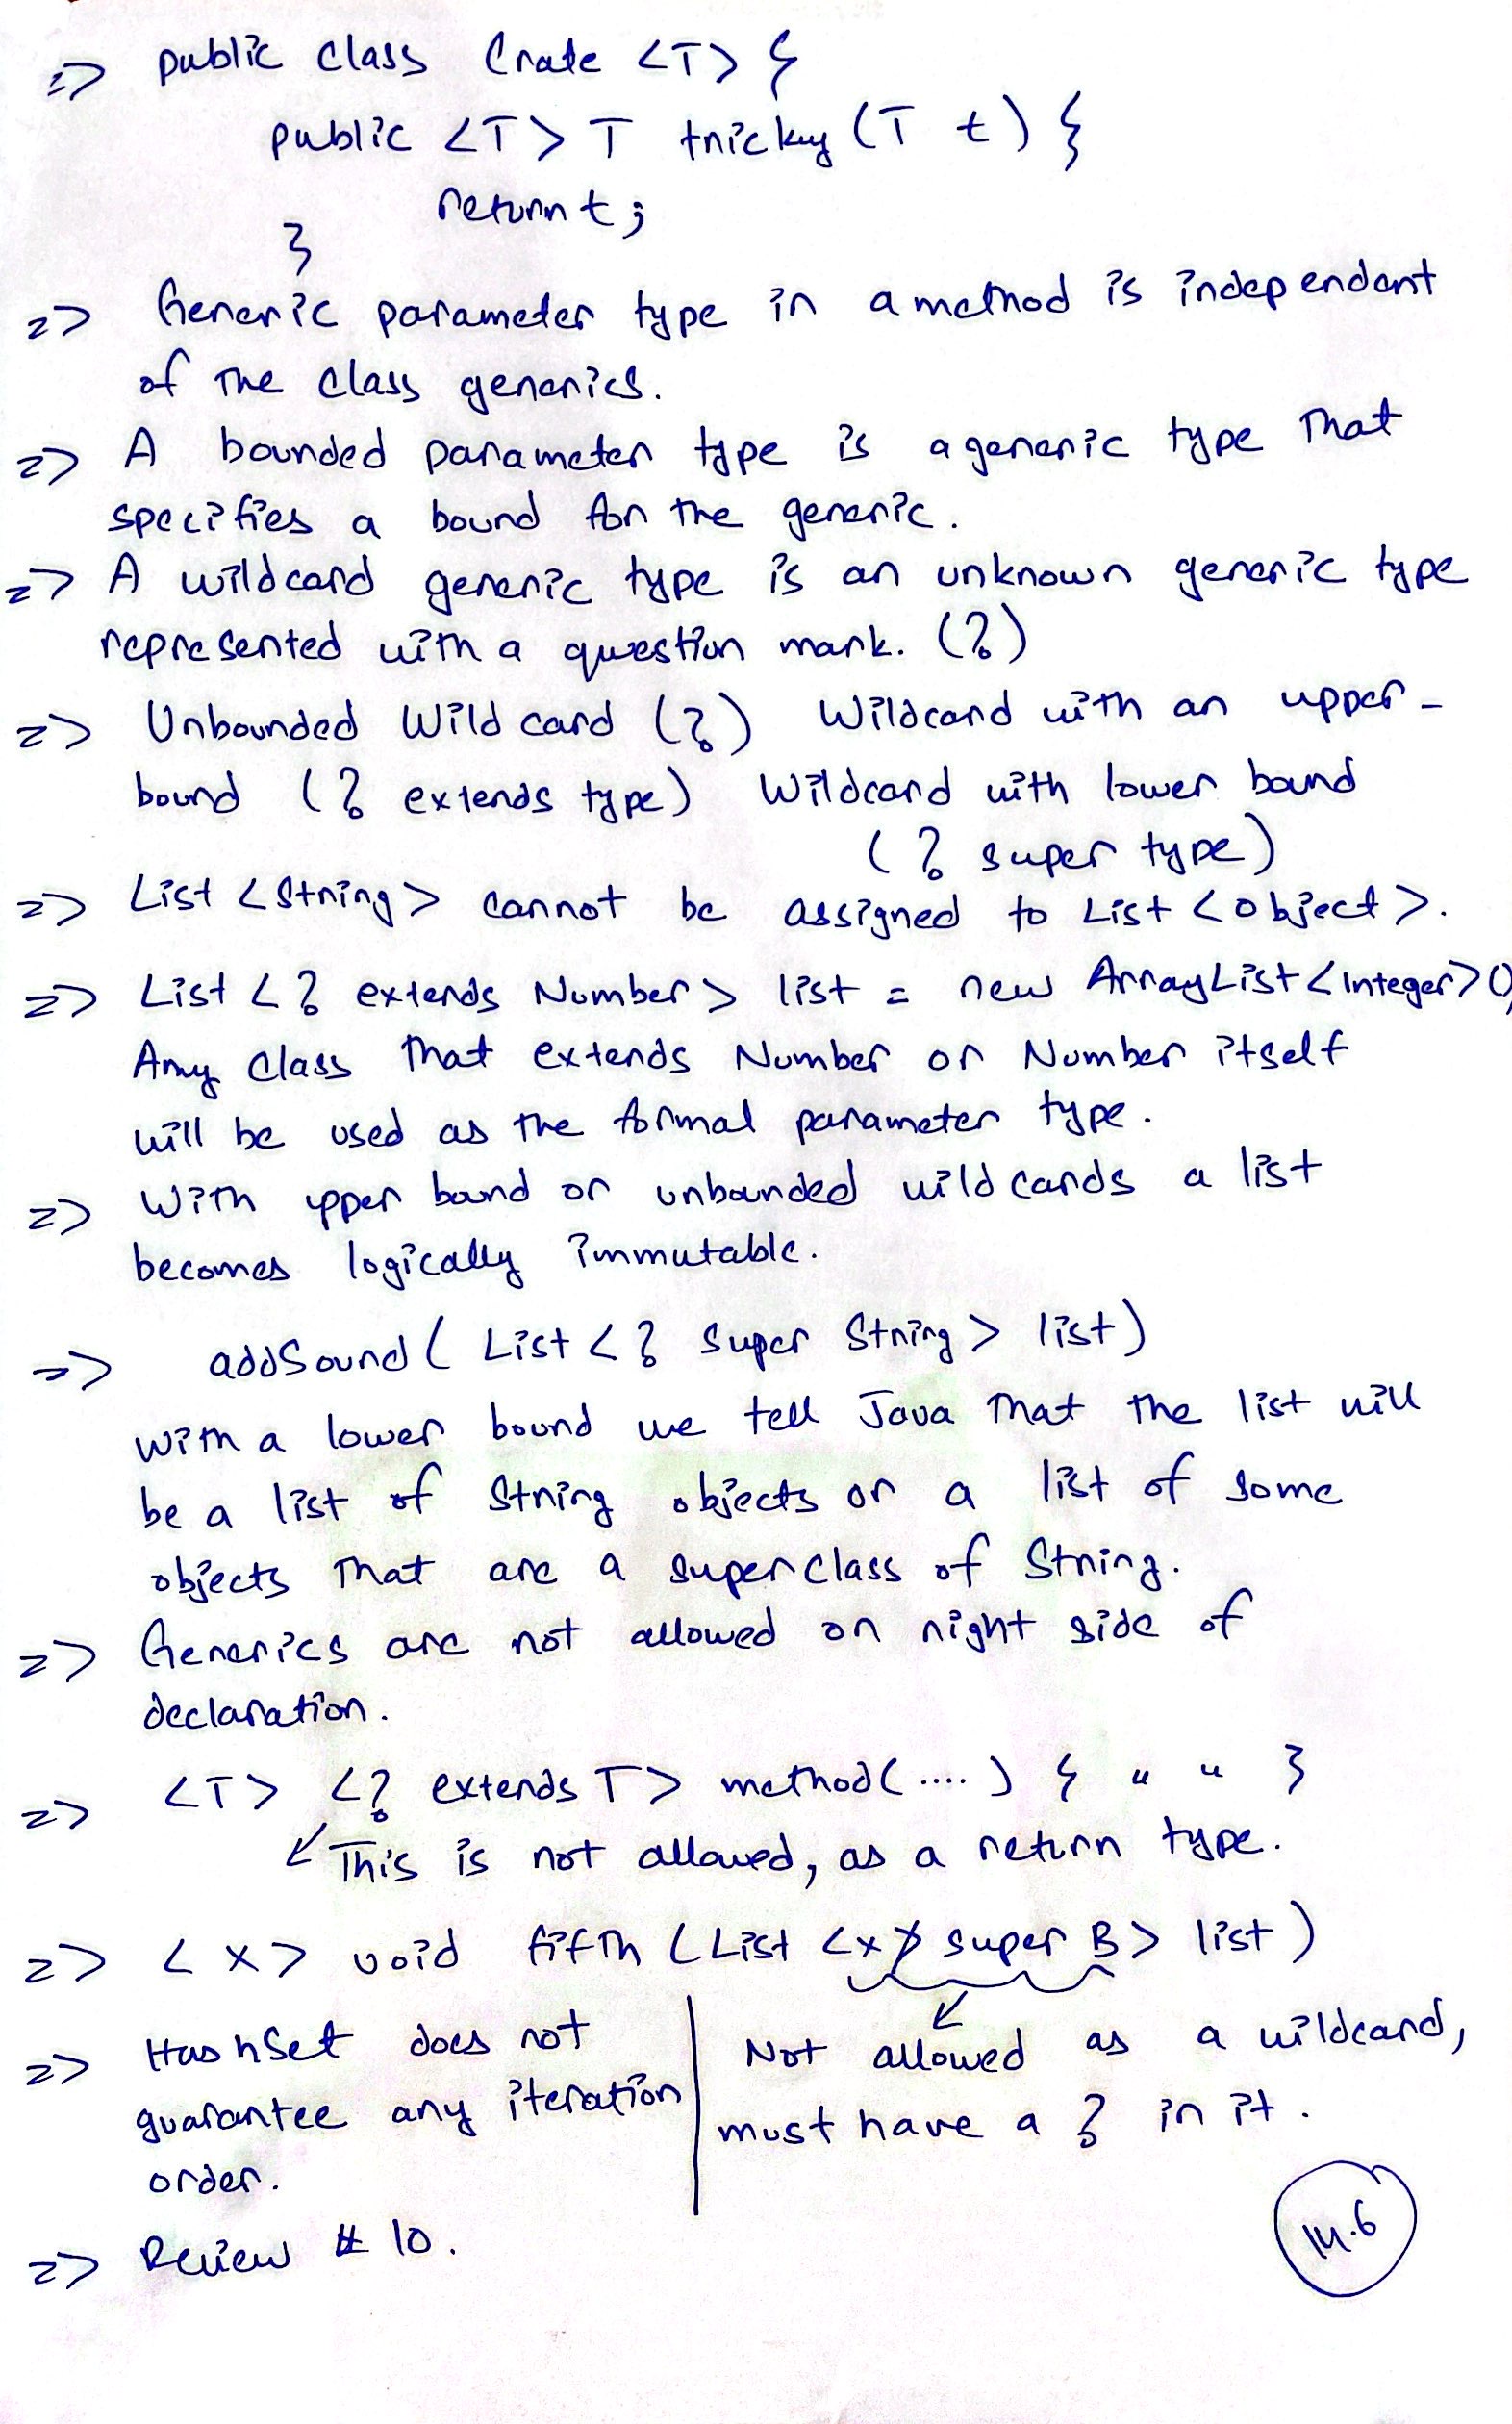 => public class Crate <T> {
public <T> T tricky (T t) {
return t;
}
=> Generic parameter type in a method is independent
of the class generics.
=> A bounded parameter type is a generic type that
specifies a bound for the generic.
=> A wildcard generic type is an unknown generic type
represented with a question mark. (?)
=> Unbounded Wildcard (?) Wildcard with an upper-
bound (? extends type) Wildcard with lower bound
(? super type)
=> List <String> cannot be assigned to List <object>.
=> List <? extends Number> list = new ArrayList<Integer>();
Any class that extends Number or Number itself
will be used as the formal parameter type.
=> With upper bound or unbounded wildcards a list
becomes logically immutable.
=> addSound( List <? super String> list)
With a lower bound we tell Java that the list will
be a list of String objects or a list of some
objects that are a superclass of String.
=> Generics are not allowed on right side of
declaration.
=> <T> <? extends T> method(....) { " " }
This is not allowed, as a return type.
=> <X> void fifth (List <X super B> list)
Not allowed as a wildcard,
must have a ? in it.
=> HashSet does not
guarantee any iteration
order.
=> Review # 10.
14.6